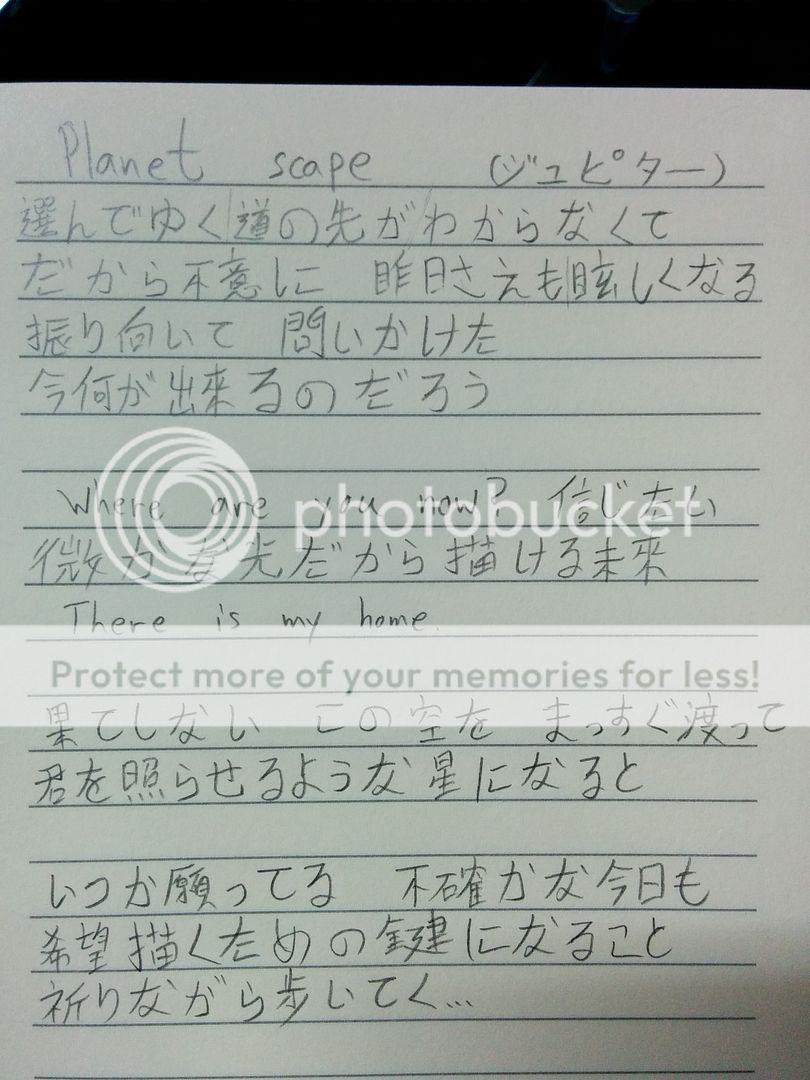 Planet scape (ジュピター)
選んでゆく道の先がわからなくて
だから不意に 昨日さえも眩しくなる
振り向いて 問いかけた
今何が出来るのだろう
Where are you now? 信じたい
photobucket
微かな光だから描ける未来
There is my home.
Protect more of your memories for less!
果てしない この空を まっすぐ渡って
君を照らせるような星になると
いつか願ってる 不確かな今日も
希望描くための鍵になること
祈りながら歩いてく...